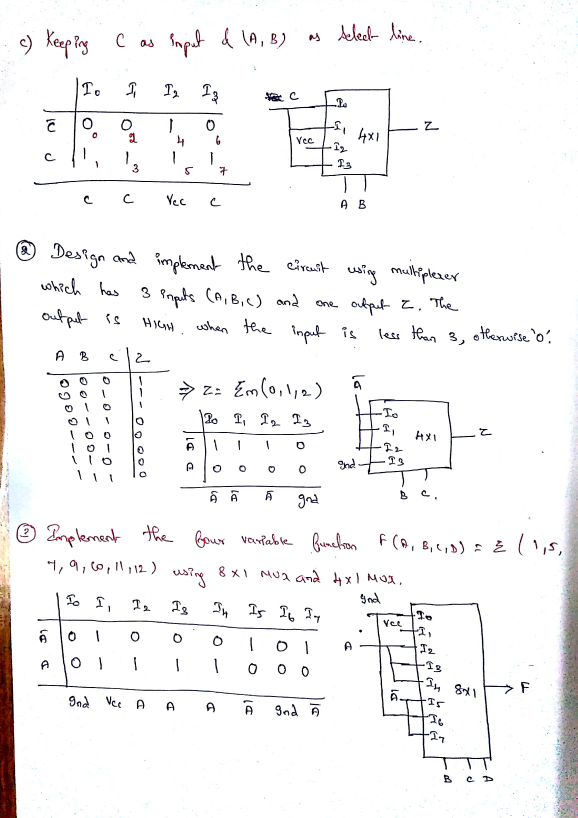 c) Keeping C as input & (A, B) as select line.
I0 I1 I2 I3
C̅ 0 0 1 0
0 2 4 6
C 1 1 1 1
1 3 5 7
C C Vcc C
C
I0
I1
Vcc I2
I3
4x1
Z
A B
② Design and implement the circuit using multiplexer
which has 3 inputs (A, B, C) and one output Z. The
output is HIGH. when the input is less than 3, otherwise '0'.
A B C Z
0 0 0 1
0 0 1 1
0 1 0 1
0 1 1 0
1 0 0 0
1 0 1 0
1 1 0 0
1 1 1 0
⇒ Z = Σm(0,1,2)
I0 I1 I2 I3
A̅ 1 1 1 0
A 0 0 0 0
A̅ A̅ A̅ gnd
A̅
I0
I1
I2
gnd I3
4x1
Z
B C.
③ Implement the four variable function F(A, B, C, D) = Σ (1, 5,
7, 9, 10, 11, 12) using 8x1 MUX and 4x1 MUX.
I0 I1 I2 I3 I4 I5 I6 I7
A̅ 0 1 0 0 0 1 0 1
A 0 1 1 1 1 0 0 0
gnd Vcc A A A A̅ gnd A̅
gnd
I0
Vcc I1
A I2
I3
I4
A̅ I5
I6
I7
8x1
F
B C D